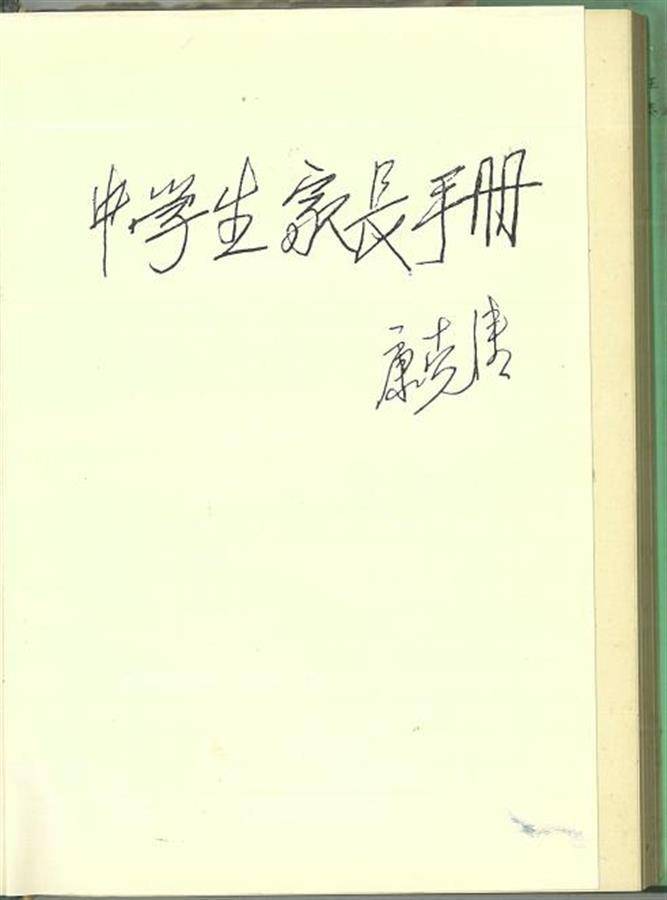 中学生家长手册
康克清